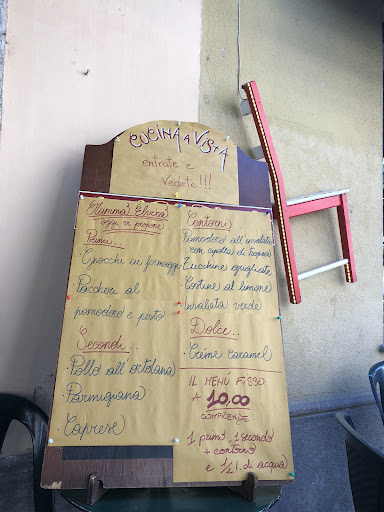 CUCINA A VISTA
entrate e
vedete!!!
Mamma Elvira
oggi vi propone
Primi...
· Gnocchi ai formaggi
· Paccheri al
pomodoro e pesto
Secondi..
· Pollo all'ortolana
· Parmigiana
· Caprese
Contorni
Pomodoro all'insalata
con cipolla di Tropea
Zucchine grigliate
Carote al limone
Insalata verde
Dolce..
· Créme caramel
IL MENÚ FISSO
A 10,00
COMPRENDE
1 primo, 1 secondo
+ contorno
e 1/2 l. di acqua